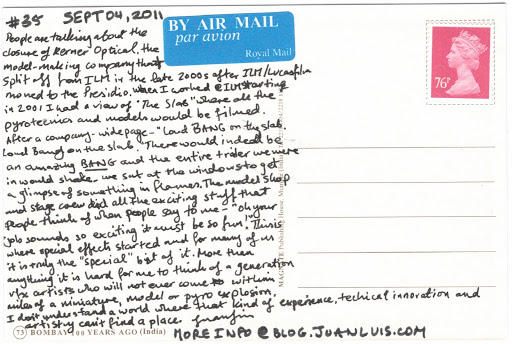 #35 SEPT 04, 2011
People are talking about the
closure of Kerner Optical, the
model-making company that
split off from ILM in the late 2000s after ILM/Lucasfilm
moved to the Presidio. When I worked @ ILM starting
in 2001 I had a view of "The Slab" where all the
pyrotecnics and models would be filmed.
After a company-wide page - "Loud BANG on the slab.
Loud Bang on the slab." There would indeed be
an amazing BANG and the entire trailer we were
in would shake. We sat at the windows to get
a glimpse of something in flames. The model shop
and stage crew did all the exciting stuff that
people think of when people say to me - "oh your
job sounds so exciting it must be so fun!" This is
where special effects started and for many of us
it is truly the "special" bit of it. More than
anything it is hard for me to think of a generation
of vfx artists who will not ever come to within
miles of a miniature, model or pyro explosion.
I don't understand a world where that kind of experience, techical innovation and
artistry can't find a place. Juanluis
MORE INFO @ BLOG.JUANLUIS.COM
BY AIR MAIL
par avion
Royal Mail
76P
73 BOMBAY 100 YEARS AGO (India)